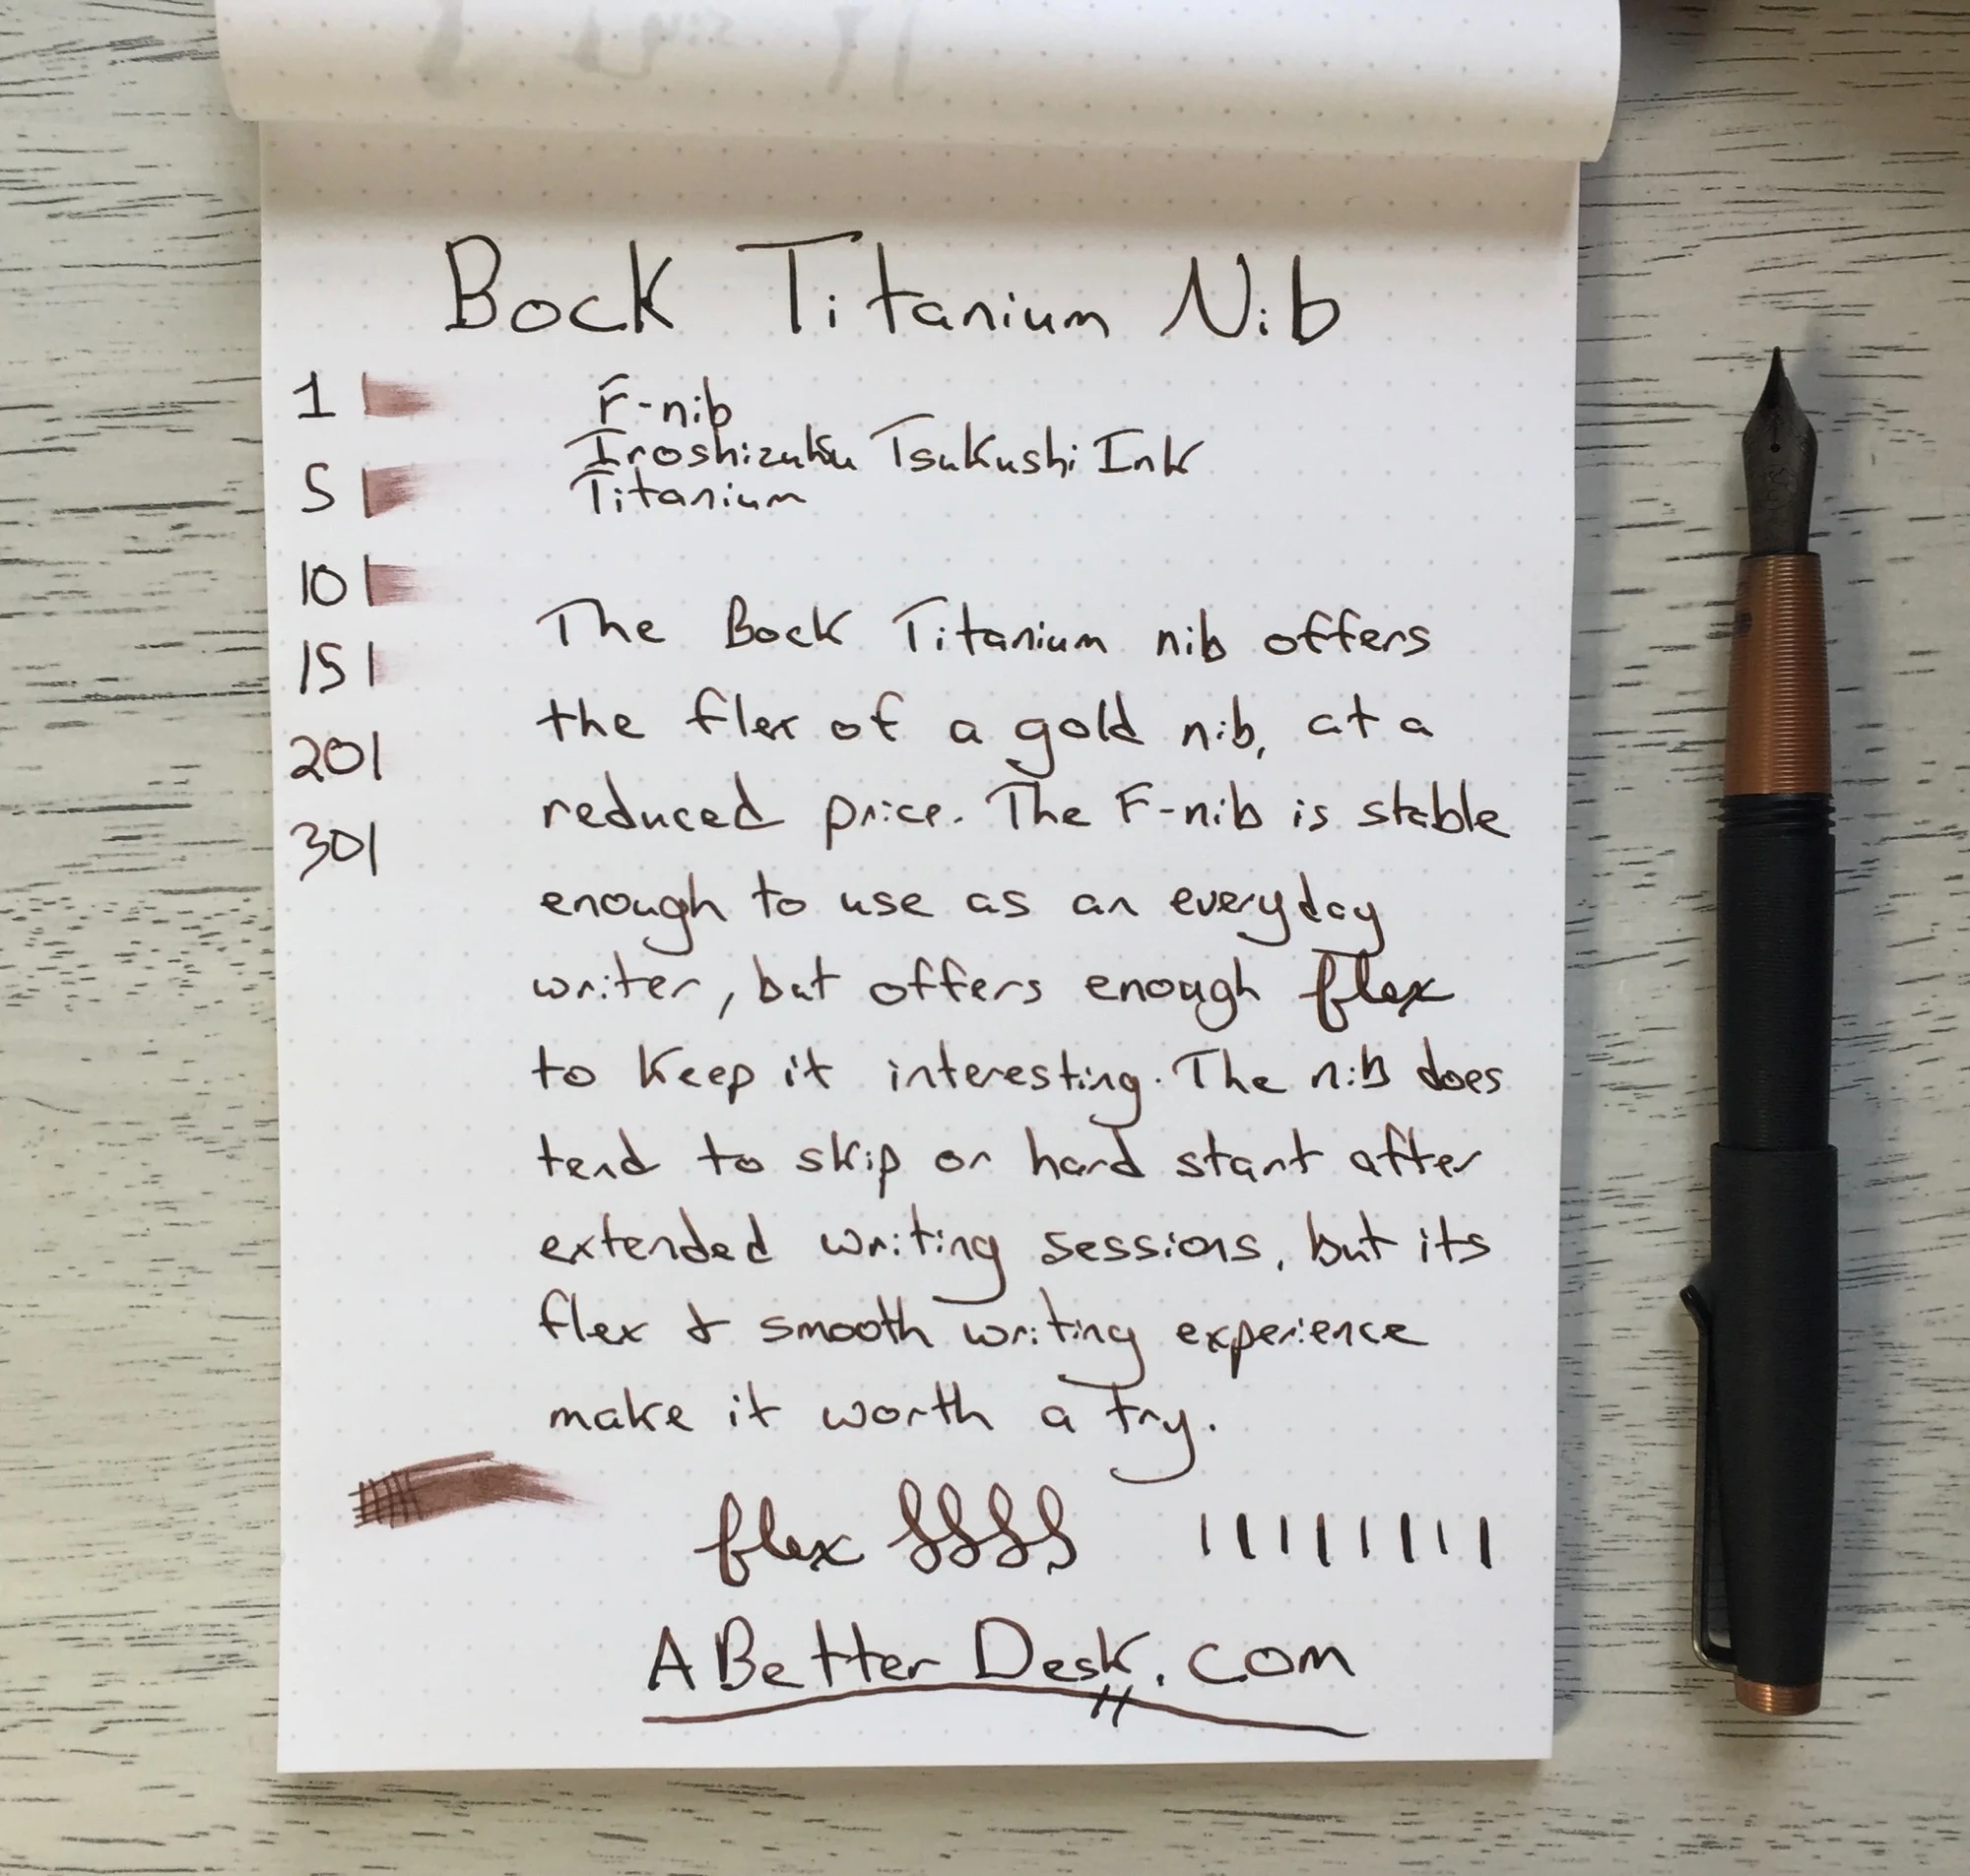 Bock Titanium Nib
1
F-nib
Iroshizuku Tsukushi Ink
5
Titanium
10
The Bock Titanium nib offers
15
the flex of a gold nib, at a
20
reduced price. The F-nib is stable
30
enough to use as an everyday
writer, but offers enough flex
to keep it interesting. The nib does
tend to skip or hard start after
extended writing sessions, but its
flex & smooth writing experience
make it worth a try.
flex
ABetterDesk.com